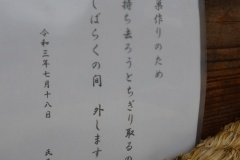 巣作りのため
持ち去ろうとちぎり取るの
しばらくの間 外します
令和三年七月十八日